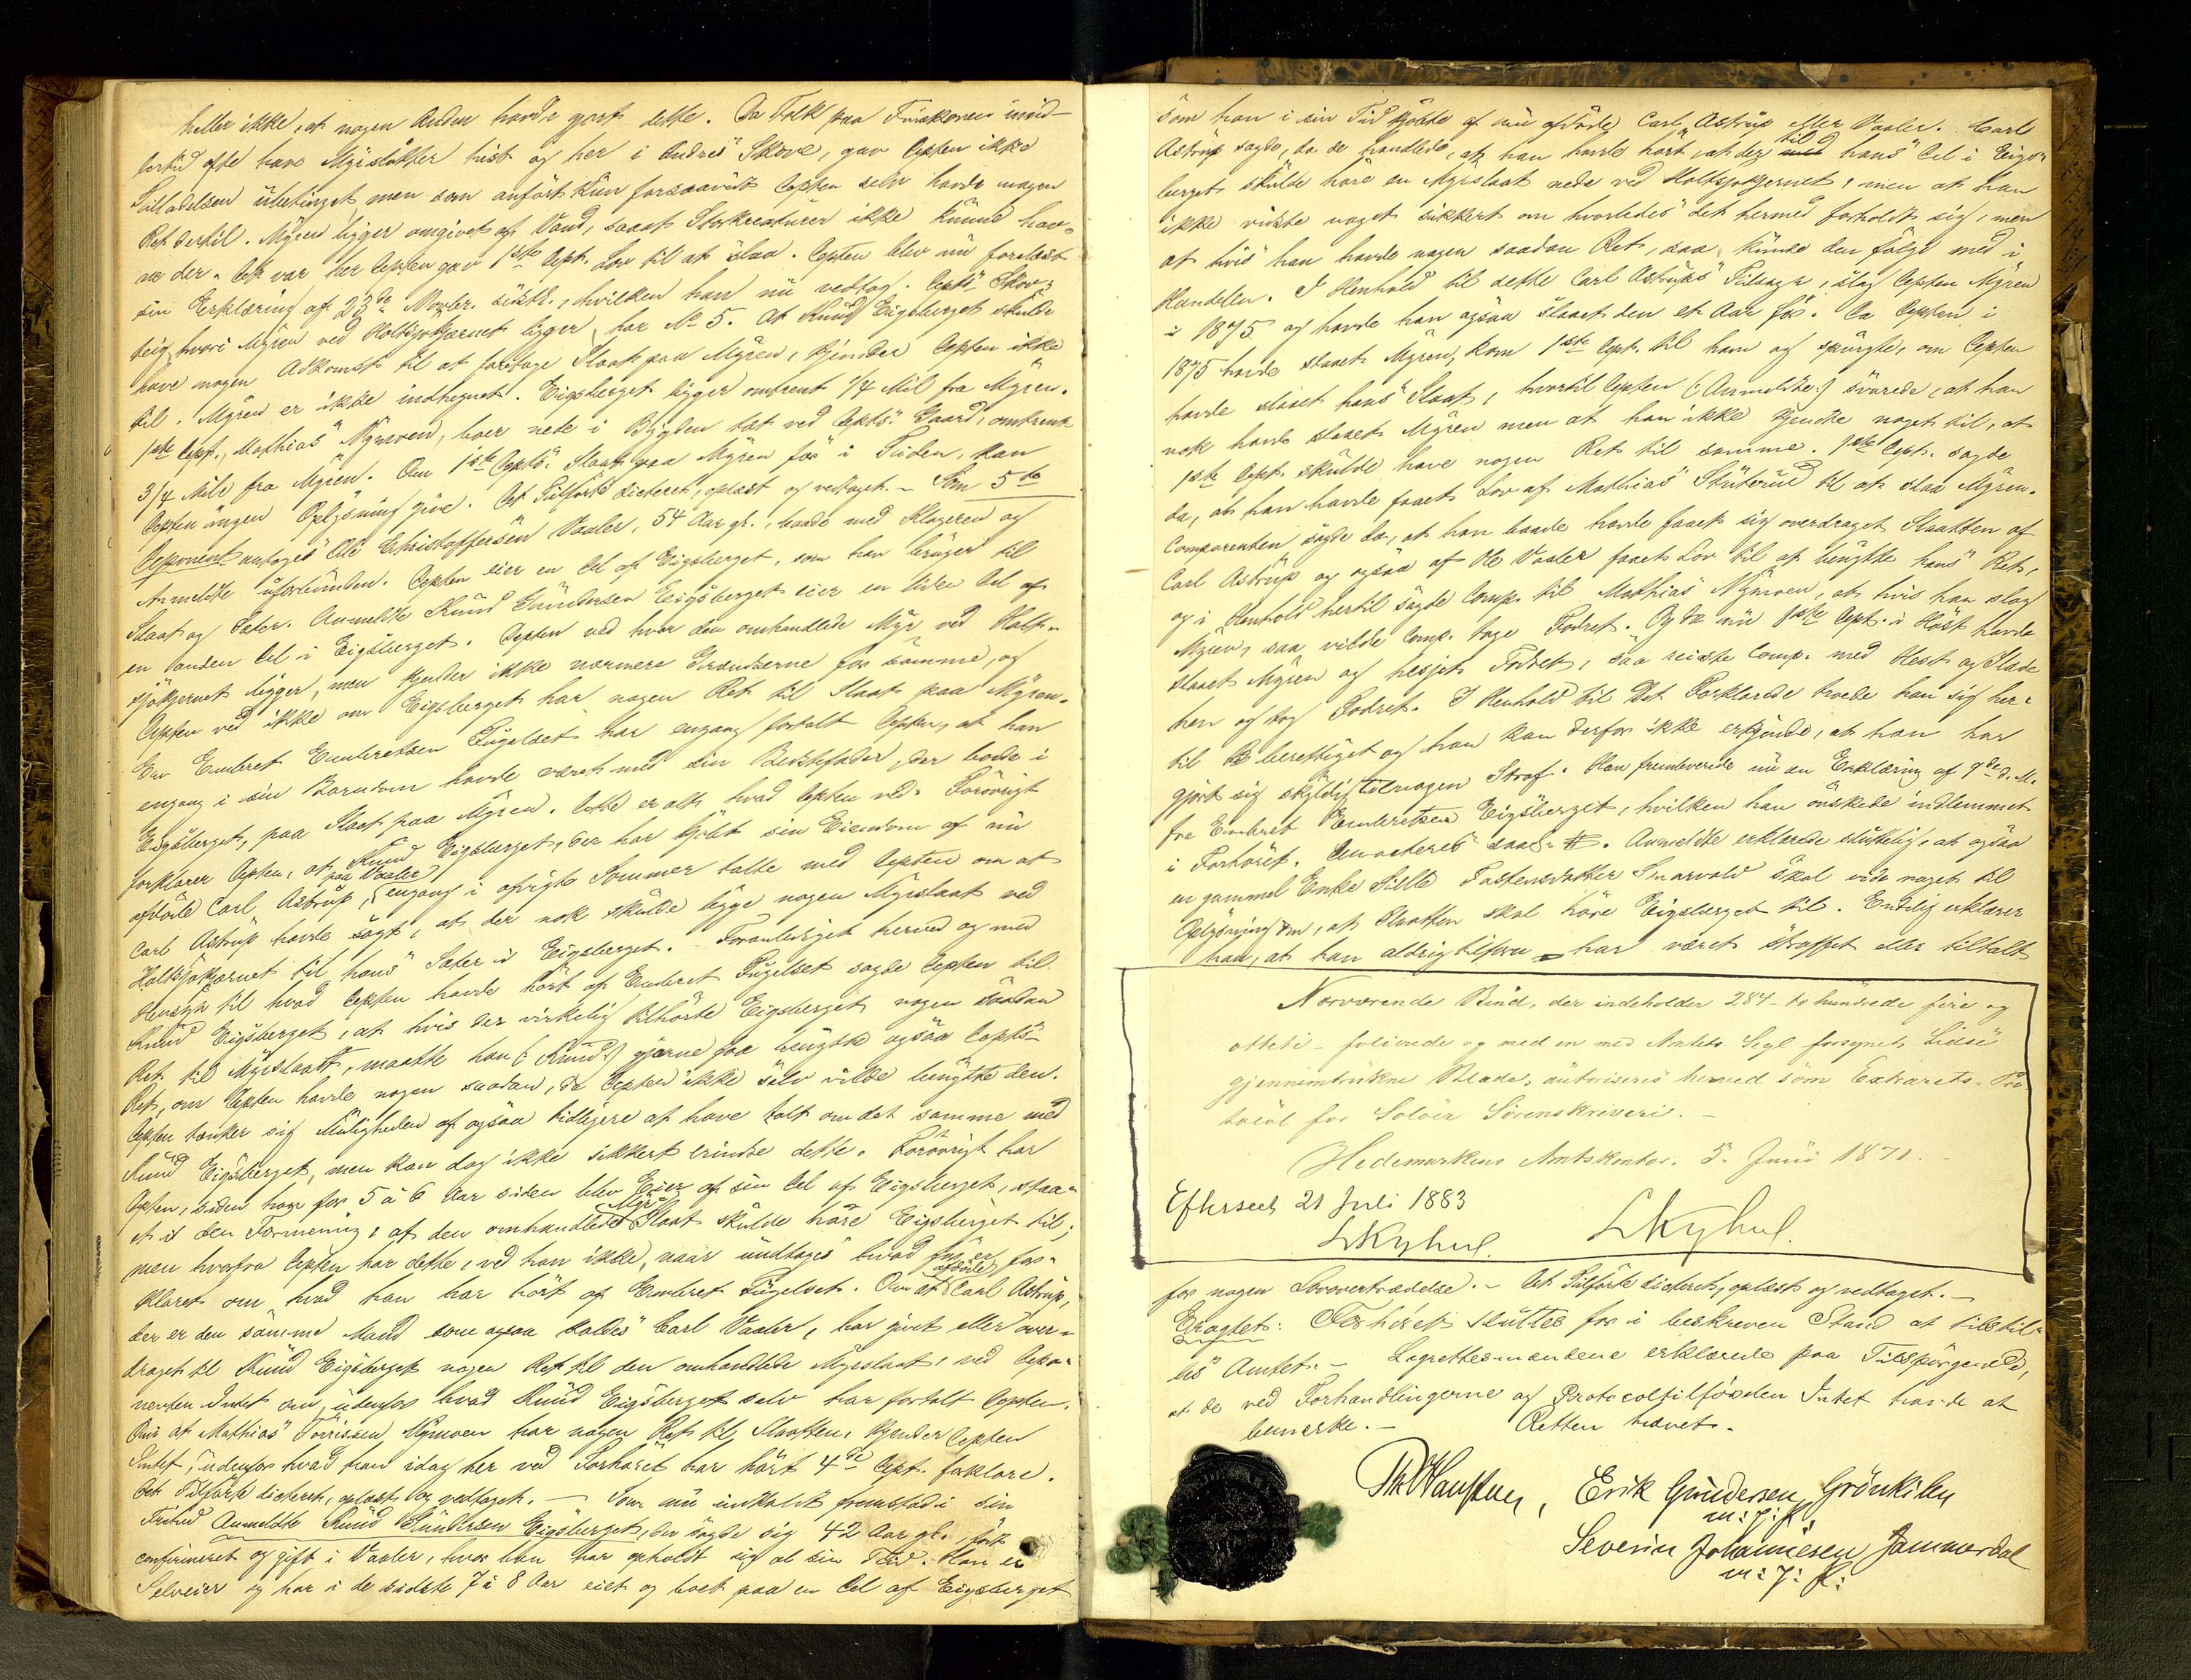 heller ikke, at nogen Anden havde gjort dette. Da Folk paa Finskoven imid-
lertid ofte have Myrslaatter hist og her i Andres Skove, gav Depten ikke
Tilladelsen ubetinget men som anført kun forsaavidt Depten selv havde nogen
Ret dertil. Myren ligger omgivet af Vand, saaat Storkreaturer ikke kunde hav-
ne der. Det var her Depten gav 1ste Dept. Lov til at slaa. Depten blev nu forelæst
sin Erklæring af 23de Novbr. sidstl., hvilken han nu vedtog. Depts Skov-
teig, hvori Myren ved Holtsjøkjernet ligger har No 5. At Knud Eigsberget skulde
have nogen Adkomst til at foretage Slaat paa Myren, kjender Depten ikke
til. Myren er ikke indhegnet. Eigsberget ligger omtrent 1/4 Mil fra Myren.
1ste Dept., Mathias Nymoen, boer nede i Bygden tæt ved Depts. Gaard, omtrent
3/4 Mile fra Myren. Om 1ste Depts. Slaat paa Myren før i Tiden, kan
Depten ingen Oplysning give. Det Tilførte dicteret, oplæst og vedtaget. – Som 5te
Deponent antoges Ole Christoffersen Vaaler, 54 Aar gl., baade med Klageren og
Anmeldte uforbunden. Depten eier en Del af Eigsberget, som han bruger til
Slaat og Sæter. Anmeldte Knud Gundersen Eigsberget eier en liden Del af
en anden Del i Eigsberget. Depten ved hvor den omhandlede Myr ved Holt-
sjøkjernet ligger, men kjender ikke nærmere Grændserne for samme, og
Depten ved ikke om Eigsberget har nogen Ret til Slaat paa Myren.
En Embret Embretsen Tugelset har engang fortalt Depten, at han
engang i sin Barndom havde været med sin Bedstefader, der boede i
Eigsberget, paa Slaat paa Myren. Dette er alt hvad Depten ved. Forøvrigt
forklarer Depten, at Knud Eigsberget, der har kjøbt sin Eiendom af nu
afdøde Carl Astrup, paa Vaaler, engang i afvigte Sommer talte med Depten om at
Carl Astrup havde sagt, at der nok skulde ligge nogen Myrslaat ved
Holtsjøkjærnet til hans Sæter i Eigsberget. Foranlediget herved og med
Hensyn til hvad Depten havde hørt af Embret Tugelset sagde Depten til
Knud Eigsberget, at hvis der virkelig tilhørte Eigsberget nogen saadan
Ret til Myrslaatt, maatte han (: Knud :) gjerne paa benytte ogsaa Depts
Ret, om Depten havde nogen saadan, da Depten ikke selv vilde benytte den.
Depten tænker sig Muligheden af ogsaa tidligere at have talt om det samme med
Knud Eigsberget, men kan dog ikke sikkert erindre dette. Forøvrigt har
Depten, siden han for 5 à 6 Aar siden blev Eier af sin Del af Eigsberget, staa-
et i den Formening, at den omhandlede Myr Slaat skulde høre Eigsberget til;
men hvorfra Depten har dette, ved han ikke, naar undtages hvad før er for-
klaret om hvad han har hørt af Embret Tugelset. Om at afdøde Carl Astrup,
der er den samme Mand som ogsaa kaldes Carl Vaaler, har givet eller over-
draget til Knud Eigsberget nogen Ret til den omhandlede Myrslaat, ved Depo-
nenten Intet om, udenfor hvad Knud Eigsberget selv har fortalt Depten.
Om at Mathias Torissen Nymoen har nogen Ret til Slaatten, kjender Depten
Intet, udenfor hvad han idag her ved Forhøret har hørt 4de Dept. forklare.
Det Tilførte dicteret, oplæst og vedtaget. – Som nu indkaldt fremstod i sin
Frihed Anmeldte Knud Gundersen Eigsberget, der sagde sig 42 Aar gl., født
confirmeret og gift i Vaaler, hvor han har opholdt sig al sin Tid. Han er
Selveier og har i de sidste 7 à 8 Aar eiet og boet paa en Del af Eigsberget
som han i sin Tid kjøbte af nu afdøde Carl Astrup eller Vaaler. Carl
Astrup sagde, da de handlede, at han havde hørt, at der til hans Del i Eigs-
berget skulde høre en Myrslaat nede ved Holtsjøkjernet, men at han
ikke vidste noget sikkert om hvorledes det hermed forholdt sig, men
at hvis han havde nogen saadan Ret, saa kunde den følge med i
Handelen. I Henhold til dette Carl Astrups Tilsagn, slog Depten Myren
i 1875 og havde han ogsaa slaaet den et Aar før. Da Depten i
1875 havde slaaet Myren, kom 1ste Dept. til ham og spurgte, om Depten
havde slaaet hans Slaat, hvortil Depten (: Anmeldte :) svarede, at han
nok havde slaaet Myren men at han ikke kjendte noget til, at
1ste Dept. skulde have nogen Ret til samme. 1ste Dept. sagde
da, at han havde faaet Lov af Mathias Stuterud til at slaa Myren.
Comparenten sagde da, at han baade havde faaet sig overdraget Slaatten af
Carl Astrup og ogsaa af Ole Vaaler faaet Lov til at benytte hans Ret,
og i Henhold hertil sagde Comp. til Mathias Nymoen, at hvis han slog
Myren, saa vilde Comp. tage Fodret. Og da nu 1ste Dept. i Høst havde
slaaet Myren og hesjet Fodret, saa reiste Comp. med Hest og Slæde
hen og tog Fodret. I Henhold til det Forklarede troede han sig her-
til berettiget og han kan derfor ikke erkjende, at han har
gjort sig skyldig til nogen Straf. Han fremleverede nu en Erklæring af 9de d. M.
fra Embret Embretsen Eigsberget, hvilken han ønskede indlemmet
i Forhøret. Den acteres saal. #. Anmeldte erklærede sluttelig, at ogsaa
en gammel Enke Sille Tostensdatter Snarvold skal vide noget til
Oplysning om, at Slaatten skal høre Eigsberget til. Endelig erklærer
han, at han aldrig tilforn har været straffet eller tiltalt
Nærværende Bind, der indeholder 284 – to hundrede fire og
otteti – folierede og med en med Amtets Segl forsynet Lidse
gjennemtrukne Blade, autoriseres herved som Extrarets-Pro-
tocol for Solør Sorenskriveri. –
Hedemarkens Amtskontor. 5. Juni 1871. –
Efterseet 21 Juli 1883
LKyhul. LKyhul.
for nogen Lovovertrædelse. – Det Tilførte dicteret, oplæst og vedtaget. –
Eragtet: Forhøret sluttes for i beskreven Stand at tilstil-
les Amtet. – Lagrettesmændene erklærede paa Tilspørgende,
at de ved Forhandlingerne og Protocoltilførselen Intet havde at
bemærke. – Retten hævet.
Erik Gundersen Grönkilen
m: i: P:
Severin Johannesen Jammerdal
m: i: P: